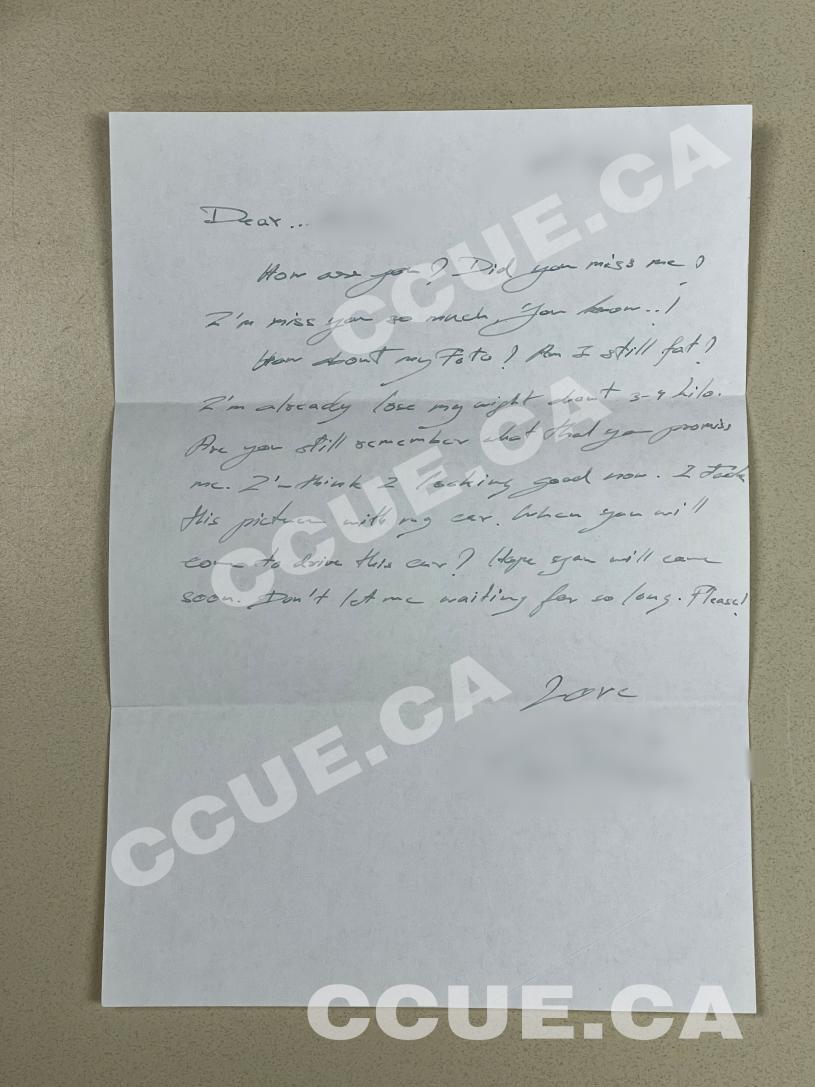 Dear...
How are you? Did you miss me?
I'm miss you so much, You know..!
How about my Foto? Am I still fat?
I'm already lose my wight about 3-4 kilo.
Are you still remember what that you promiss
me. I'm think I looking good now. I took
this picture with my car. When you will
come to drive this car? Hope you will come
soon. Don't let me waiting for so long. Please!
Love
CCUE.CA
CCUE.CA
CCUE.CA
CCUE.CA